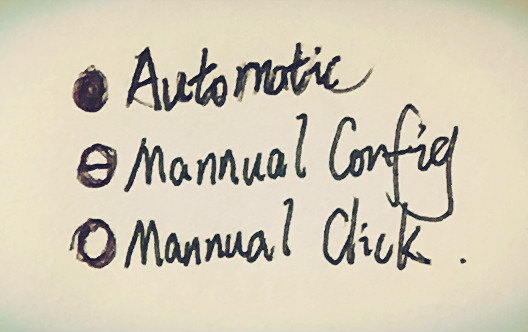 Automatic
Mannual Config
Mannual Click.